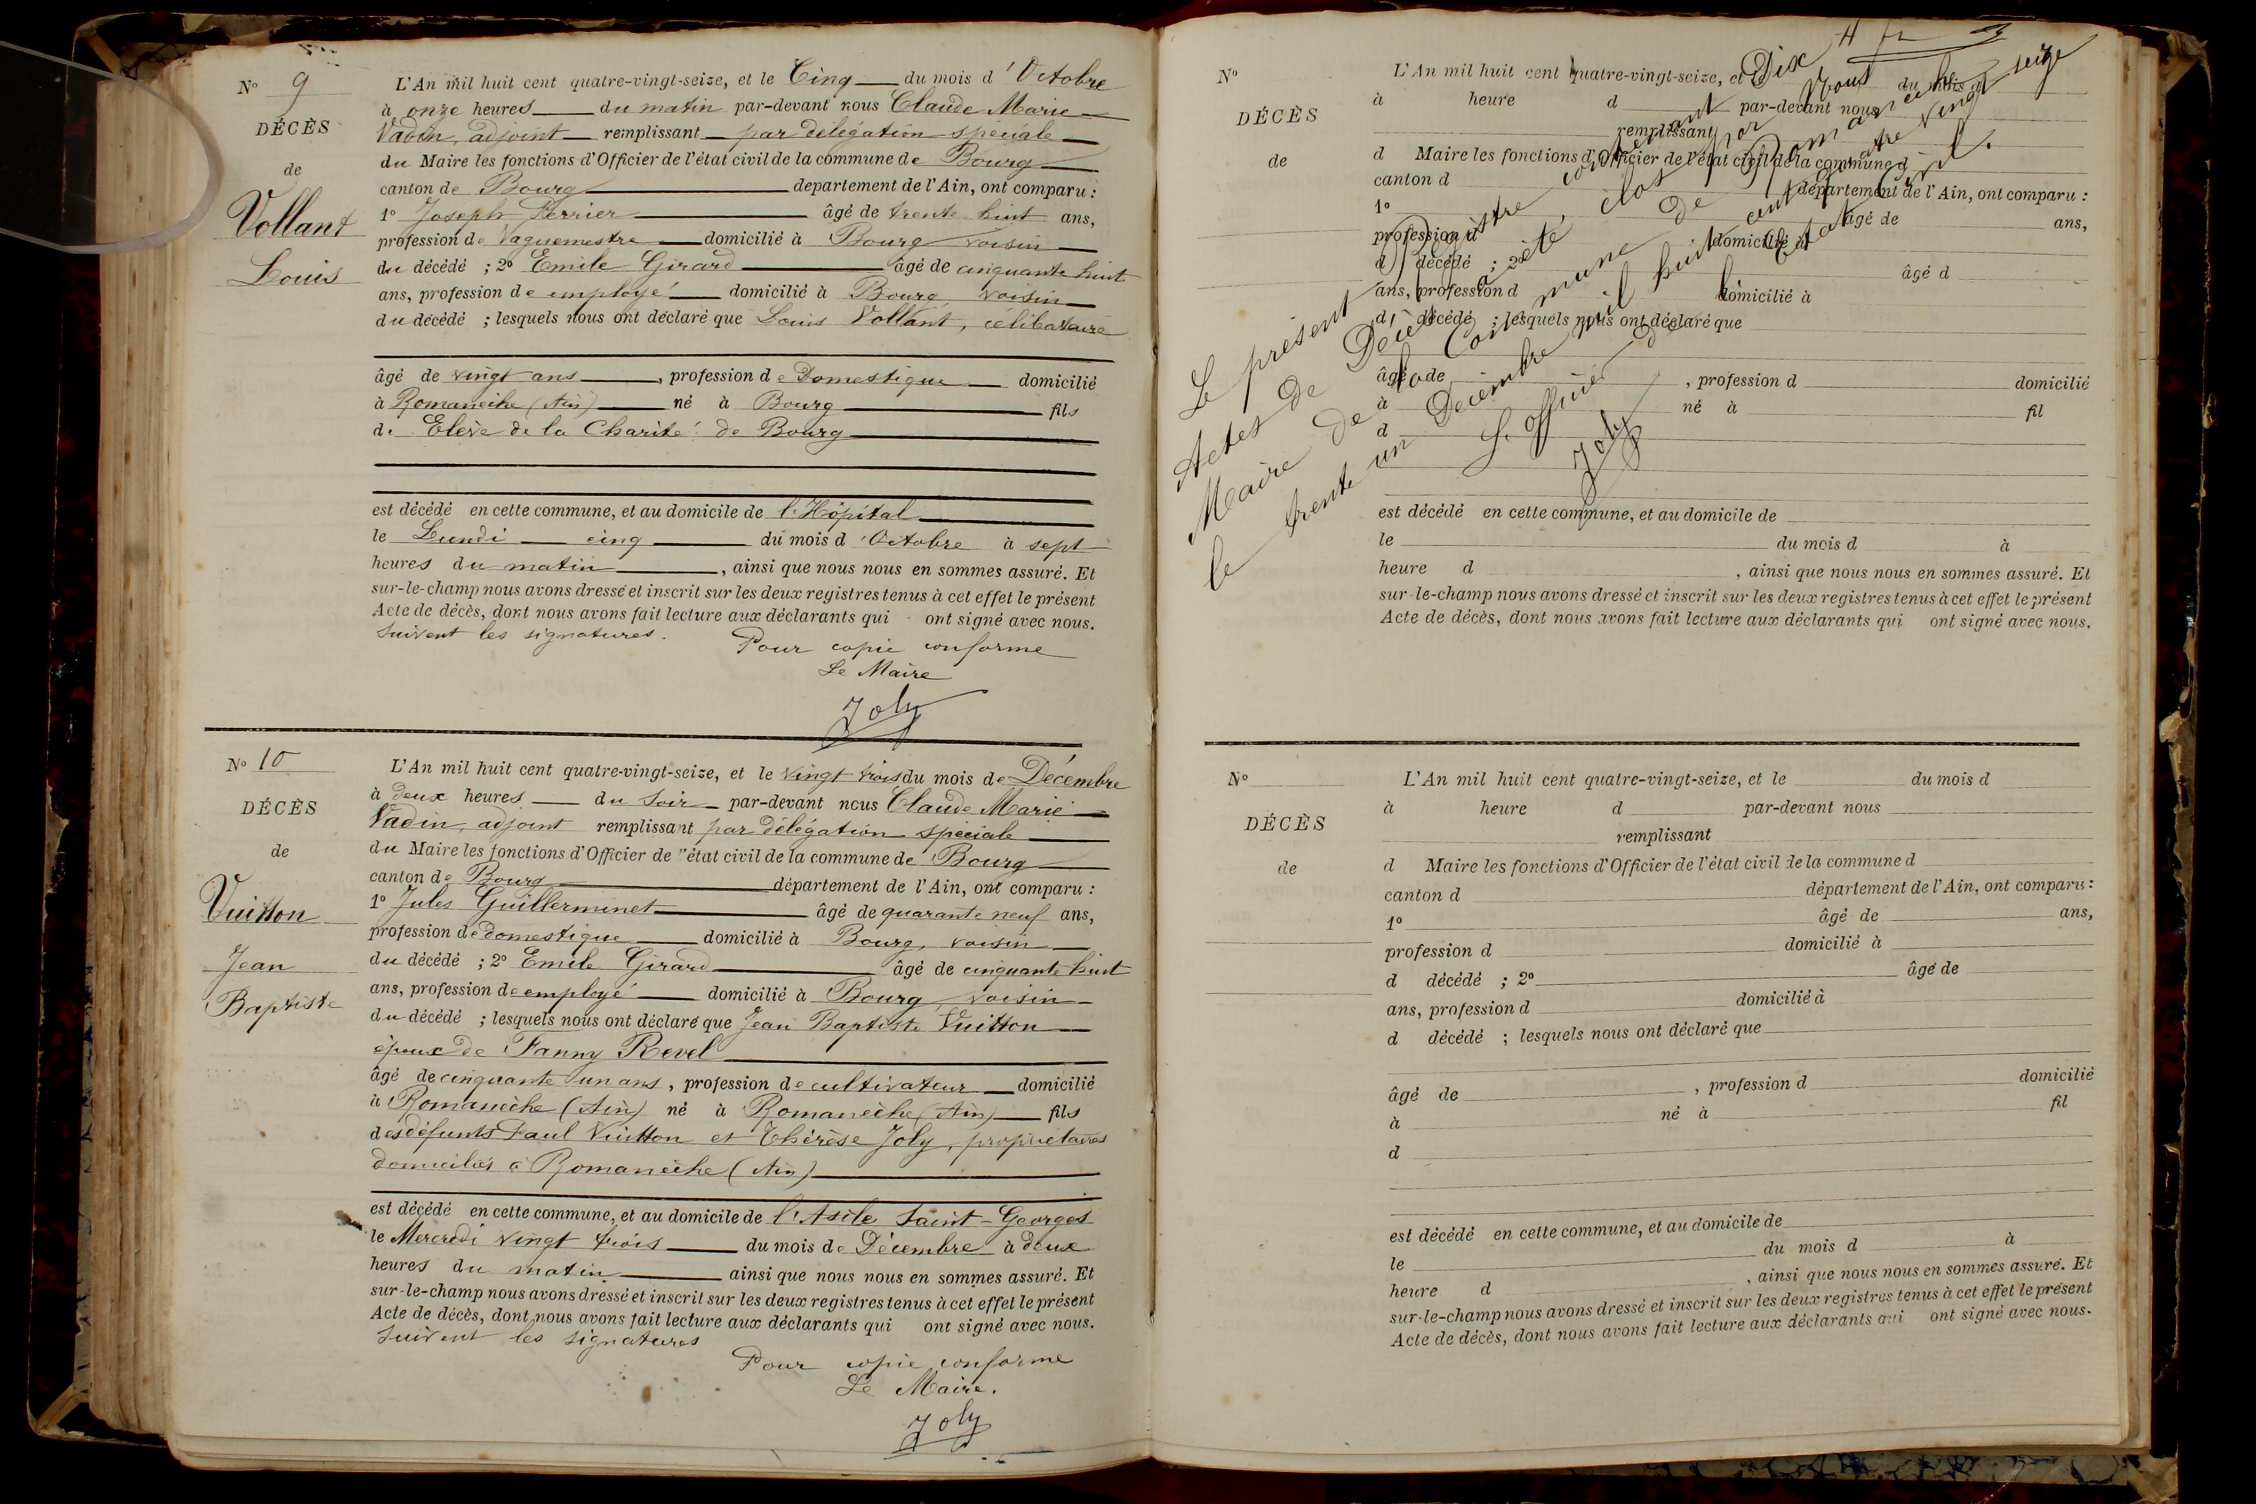 N° 9
DÉCÈS
de
Vollant
Louis
L'An mil huit cent quatre-vingt-seize, et le Cinq du mois d'Octobre
à onze heures du matin par-devant nous Claude Marie
Vadin, adjoint remplissant par délégation spéciale
du Maire les fonctions d'Officier de l'état civil de la commune de Bourg
canton de Bourg département de l'Ain, ont comparu :
1° Joseph Perrier âgé de trente huit ans,
profession de Vaguemestre domicilié à Bourg voisin
du décédé ; 2° Emile Girard âgé de cinquante huit
ans, profession de employé domicilié à Bourg, voisin
du décédé ; lesquels nous ont déclaré que Louis Vollant, célibataire
âgé de vingt ans, profession de Domestique domicilié
à Romanèche (Ain) né à Bourg fils
de Elève de la Charité de Bourg
est décédé en cette commune, et au domicile de l'Hôpital
le Lundi cinq du mois d'Octobre à sept
heures du matin, ainsi que nous nous en sommes assuré. Et
sur-le-champ nous avons dressé et inscrit sur les deux registres tenus à cet effet le présent
Acte de décès, dont nous avons fait lecture aux déclarants qui ont signé avec nous.
Suivent les signatures.
Pour copie conforme
Le Maire
Joly
N° 10
DÉCÈS
de
Vuitton
Jean
Baptiste
L'An mil huit cent quatre-vingt-seize, et le vingt trois du mois de Décembre
à deux heures du soir par-devant nous Claude Marie
Vadin, adjoint remplissant par délégation spéciale
du Maire les fonctions d'Officier de l'état civil de la commune de Bourg
canton de Bourg département de l'Ain, ont comparu :
1° Jules Guillerminet âgé de quarante neuf ans,
profession de domestique domicilié à Bourg, voisin
du décédé ; 2° Emile Girard âgé de cinquante huit
ans, profession de employé domicilié à Bourg, voisin
du décédé ; lesquels nous ont déclaré que Jean Baptiste Vuitton
époux de Fanny Revel
âgé de cinquante un ans, profession de cultivateur domicilié
à Romanèche (Ain) né à Romanèche (Ain) fils
des défunts Paul Vuitton et Thérèse Joly, propriétaires
domiciliés à Romanèche (Ain)
est décédé en cette commune, et au domicile de l'Asile Saint-Georges
le Mercredi vingt trois du mois de Décembre à deux
heures du matin ainsi que nous nous en sommes assuré. Et
sur-le-champ nous avons dressé et inscrit sur les deux registres tenus à cet effet le présent
Acte de décès, dont nous avons fait lecture aux déclarants qui ont signé avec nous.
Suivent les signatures
Pour copie conforme
Le Maire.
Joly
N°
DÉCÈS
de
L'An mil huit cent quatre-vingt-seize, et le du mois d
à heure d par-devant nous
remplissant
d Maire les fonctions d'Officier de l'état civil de la commune d
canton d département de l'Ain, ont comparu :
1° âgé de ans,
profession d domicilié à
d décédé ; 2° âgé d
ans, profession d domicilié à
d décédé ; lesquels nous ont déclaré que
âgé de , profession d domicilié
à né à fil
d
est décédé en cette commune, et au domicile de
le du mois d à
heure d , ainsi que nous nous en sommes assuré. Et
sur-le-champ nous avons dressé et inscrit sur les deux registres tenus à cet effet le présent
Acte de décès, dont nous avons fait lecture aux déclarants qui ont signé avec nous.
Le présent Registre contenant Dix
Actes de Décès a été clos par Nous
Maire de la Commune de Romanèche
le trente un Décembre mil huit cent quatre vingt seize
L'officier de l'Etat civil.
Joly
N°
DÉCÈS
de
L'An mil huit cent quatre-vingt-seize, et le du mois d
à heure d par-devant nous
remplissant
d Maire les fonctions d'Officier de l'état civil de la commune d
canton d département de l'Ain, ont comparu :
1° âgé de ans,
profession d domicilié à
d décédé ; 2° âgé de
ans, profession d domicilié à
d décédé ; lesquels nous ont déclaré que
âgé de , profession d domicilié
à né à fil
d
est décédé en cette commune, et au domicile de
le du mois d à
heure d , ainsi que nous nous en sommes assuré. Et
sur-le-champ nous avons dressé et inscrit sur les deux registres tenus à cet effet le présent
Acte de décès, dont nous avons fait lecture aux déclarants qui ont signé avec nous.